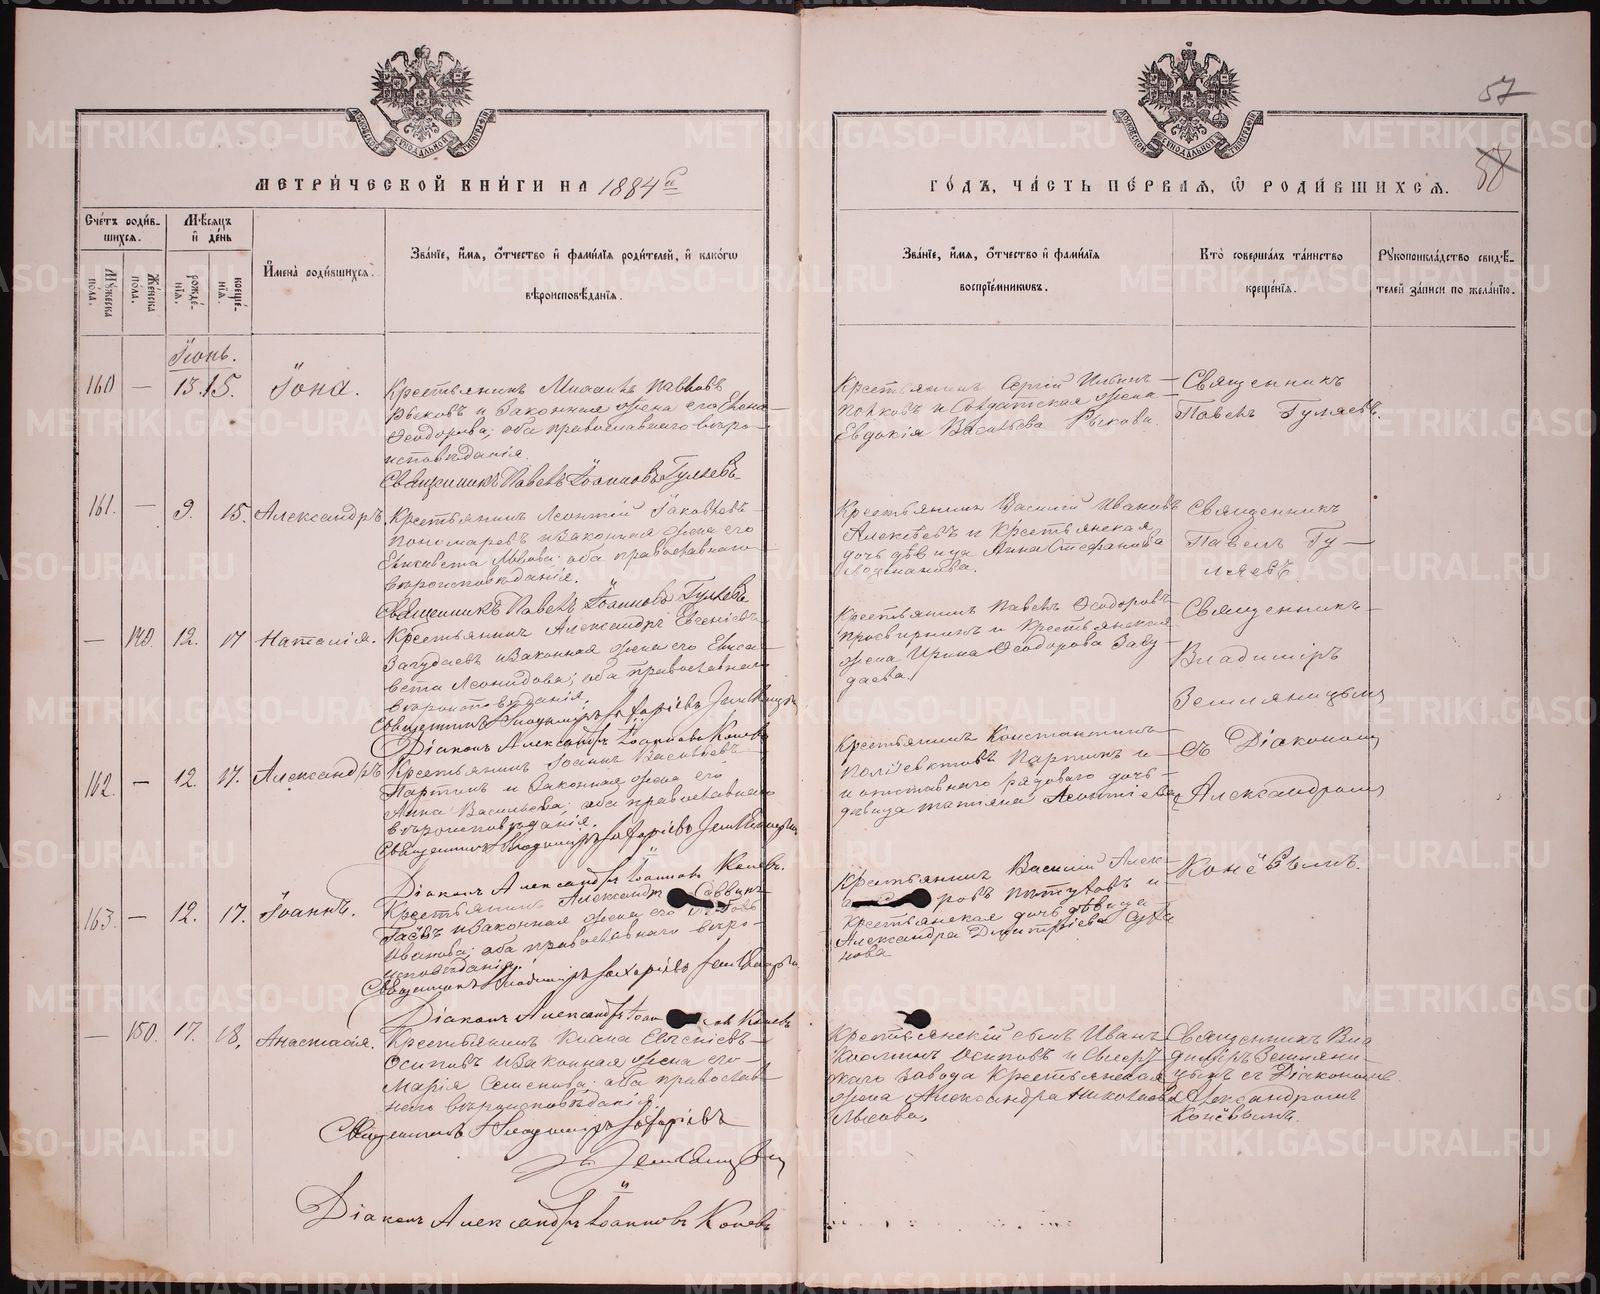 57
58
МЕТРИЧЕСКОЙ КНИГИ НА 1884 й
ГОДЪ, ЧАСТЬ ПЕРВАЯ, Ѡ РОДИВШИХСЯ.
Счетъ родив-
шихся.
Мѣсяцъ
и день
Мужеска
пола.
Женска
пола.
рожде-
нія.
креще-
нія.
Имена родившихся.
Званіе, имя, отчество и фамилія родителей, и какогѡ
вѣроисповѣданія.
Званіе, имя, отчество и фамилія
воспріемникѡвъ.
Кто совершалъ таинство
крещенія.
Рукоприкладство свидѣ-
телей записи по желанію.
Іюнь.
160 — 13. 15. Іона.
Крестьянинъ Павловъ
Рыковъ и законная жена его Елена
Ѳеодорова; оба православнаго вѣро-
исповѣданія.
Священникъ Павелъ Іоанновъ Гуляевъ
Крестьянинъ Сергій Ильинъ
и Солдатская жена
Евдокія Васильева Рыкова.
Священникъ
Павелъ Гуляевъ.
161. — 9. 15. Александръ.
Крестьянинъ Леонтій Іаковлевъ
Пономаревъ и законная жена его
Елисавета Львова; оба православнаго
вѣроисповѣданія.
Священникъ Павелъ Іоанновъ Гуляевъ
Крестьянинъ Василій Ивановъ
Алексѣевъ и Крестьянская
дочь дѣвица Анна Стефанова
Священникъ
Павелъ Гу-
ляевъ.
— 149. 12. 17 Наталія.
Крестьянинъ Александръ Евгеніевъ
и законная жена его Елиса-
вета Леонидова; оба православнаго
вѣроисповѣданія.
Священникъ Владиміръ Захаріевъ Земляницынъ
Діаконъ Александръ Іоанновъ Коневъ
Крестьянинъ Павелъ Ѳеодоровъ
Просвирнинъ и Крестьянская
жена Ирина Ѳеодорова
Священникъ
Владиміръ
Земляницынъ
162. — 12. 17. Александръ
Крестьянинъ Іоаннъ Васильевъ
Партинъ и законная жена его
Анна Васильева; оба православнаго
вѣроисповѣданія.
Священникъ Владиміръ Захаріевъ Земляницынъ
Діаконъ Александръ Іоанновъ Коневъ.
Крестьянинъ Константинъ
Поліевктовъ Партинъ и
отставнаго рядоваго дочь
дѣвица Татіана Леонтіева
съ Діакономъ
Александромъ
163. — 12. 17. Іоаннъ.
Крестьянинъ Александръ Саввинъ
и законная жена его
Иванова; оба православнаго вѣро-
исповѣданія.
Священникъ Владиміръ Захаріевъ Земляницынъ
Діаконъ Александръ Іоанновъ Коневъ
Крестьянинъ Василій Алек-
ровъ Пѣтуховъ и
Крестьянская дочь дѣвица
Александра Димитріева
нова
Конёвымъ.
— 150. 17. 18. Анастасія.
Крестьянинъ Евгеніевъ
Осиповъ и законная жена его
Марія Семенова; оба православ-
наго вѣроисповѣданія.
Священникъ Владиміръ Захаріевъ
Земляницынъ
Діаконъ Александръ Іоанновъ Коневъ
Крестьянскій сынъ Иванъ
Осиповъ и
завода Крестьянская
жена Александра Николаева
Священникъ Вла-
диміръ Земляни-
цынъ съ Діакономъ
Александромъ
Конёвымъ.